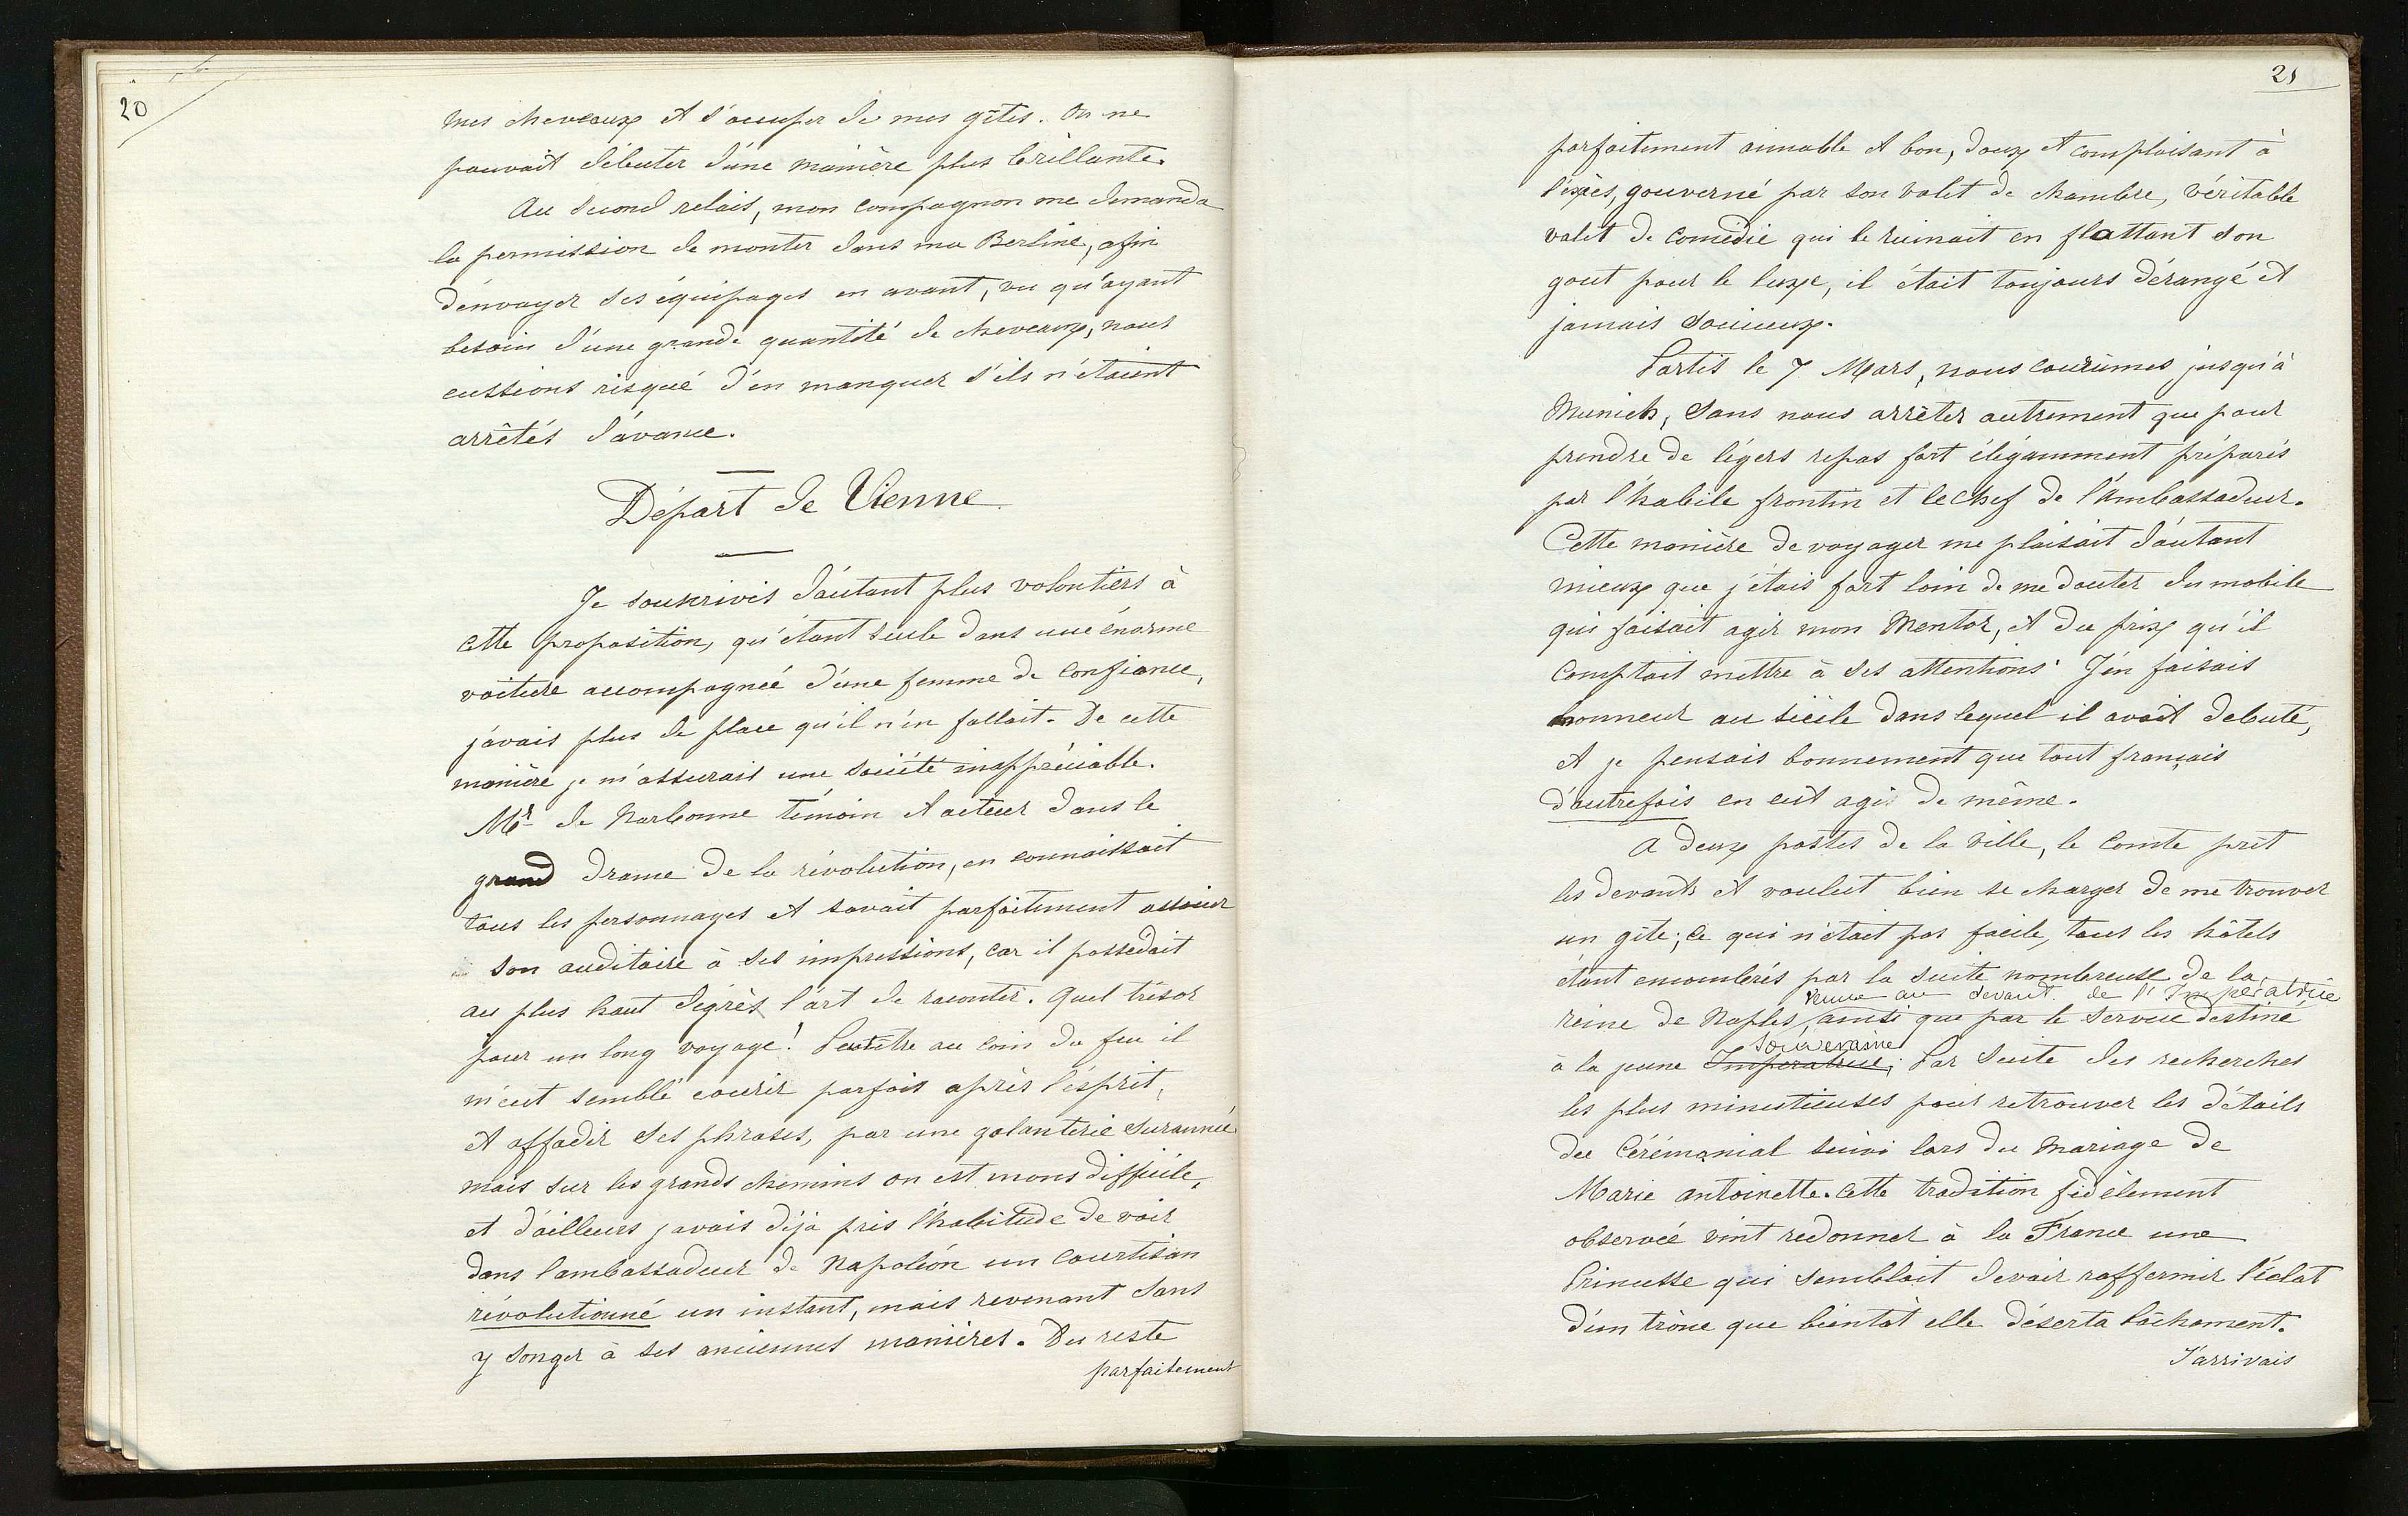 20
mes chevaux et s'occuper de mes gîtes. On ne
pouvait débuter d'une manière plus brillante.
Au second relais, mon compagnon me demanda
la permission de monter dans ma Berline, afin
d'envoyer ses équipages en avant, vu qu'ayant
besoin d'une grande quantité de chevaux, nous
eussions risqué d'en manquer s'ils n'étaient
arrêtés d'avance.
Départ de Vienne
Je souscrivis d'autant plus volontiers à
cette proposition, qu'étant seule dans une énorme
voiture accompagnée d'une femme de confiance,
j'avais plus de place qu'il n'en fallait. De cette
manière je m'assurais une société inappréciable.
Mr de Narbonne témoin et acteur dans le
grand drame de la révolution, en connaissait
tous les personnages et savait parfaitement associer
son auditoire à ses impressions, car il possedait
au plus haut dégrès l'art de raconter. Quel trésor
pour un long voyage! Peutetre au coin du feu il
m'eut semblé courir parfois après l'esprit,
et affadir ses phrases, par une galanterie surannée
mais sur les grands chemins on est moins difficile,
et d'ailleurs j'avais déja pris l'habitude de voir
dans l'ambassadeur de Napoléon un courtisan
révolutionné un instant, mais revenant sans
y songer à ses anciennes manières. Du reste
parfaitement
21
parfaitement aimable et bon, doux et complaisant à
l'excès, gouverné par son valet de chambre, véritable
valet de comédie qui le ruinait en flattant son
gout pour le luxe, il était toujours dérangé et
jamais soucieux.
Partis le 7 Mars, nous courûmes jusqu'à
Munich, sans nous arrêter autrement que pour
prendre de légers repas fort élégamment préparés
par l'habile frontin et le chef de l'ambassadeur.
Cette manière de voyager me plaisait d'autant
mieux que j'étais fort loin de me douter du mobile
qui faisait agir mon Mentor, et du prix qu'il
comptait mettre à ses attentions. J'en faisais
honneur au siècle dans lequel il avait debuté,
et je pensais bonnement que tout français
d'autrefois en eût agi de même.
A deux postes de la ville, le comte prit
les devants et voulut bien se charger de me trouver
un gîte; ce qui n'était pas facile, tous les hôtels
étant encombrés par la suite nombreuse de la
venue au devant de l'Impératrice
reine de Naples, ainsi que par le service destiné
Souveraine
à la jeune Impératrice; Par suite des recherches
les plus minutieuses pour retrouver les détails
du Cérémonial suivi lors du mariage de
Marie antoinette. cette tradition fidèlement
observée vint redonner à la France une
Princesse qui semblait devoir raffermir l'éclat
d'un trône que bientôt elle déserta lâchement.
J'arrivais